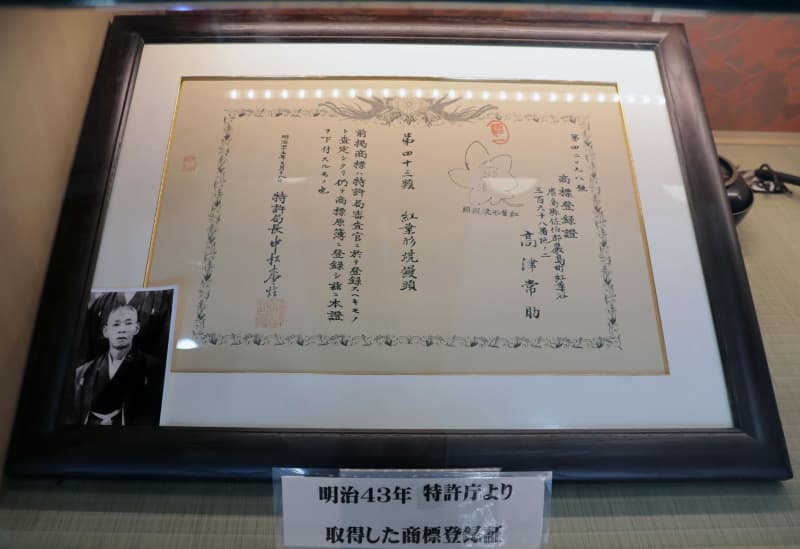 第四二七九八號
商標登録證
廣島縣佐伯郡厳島町紅葉谷
三百六十八番地ノ二
高津常助
紅葉形焼饅頭
第四十三類 紅葉形焼饅頭
前掲商標ハ特許局審査官ニ於テ登録スヘキモノ
ト査定シタリ仍テ商標原簿ニ登録シ茲ニ本證
ヲ下付スルモノ也
特許局長中松盛雄
明治43年 特許庁より
取得した商標登録証